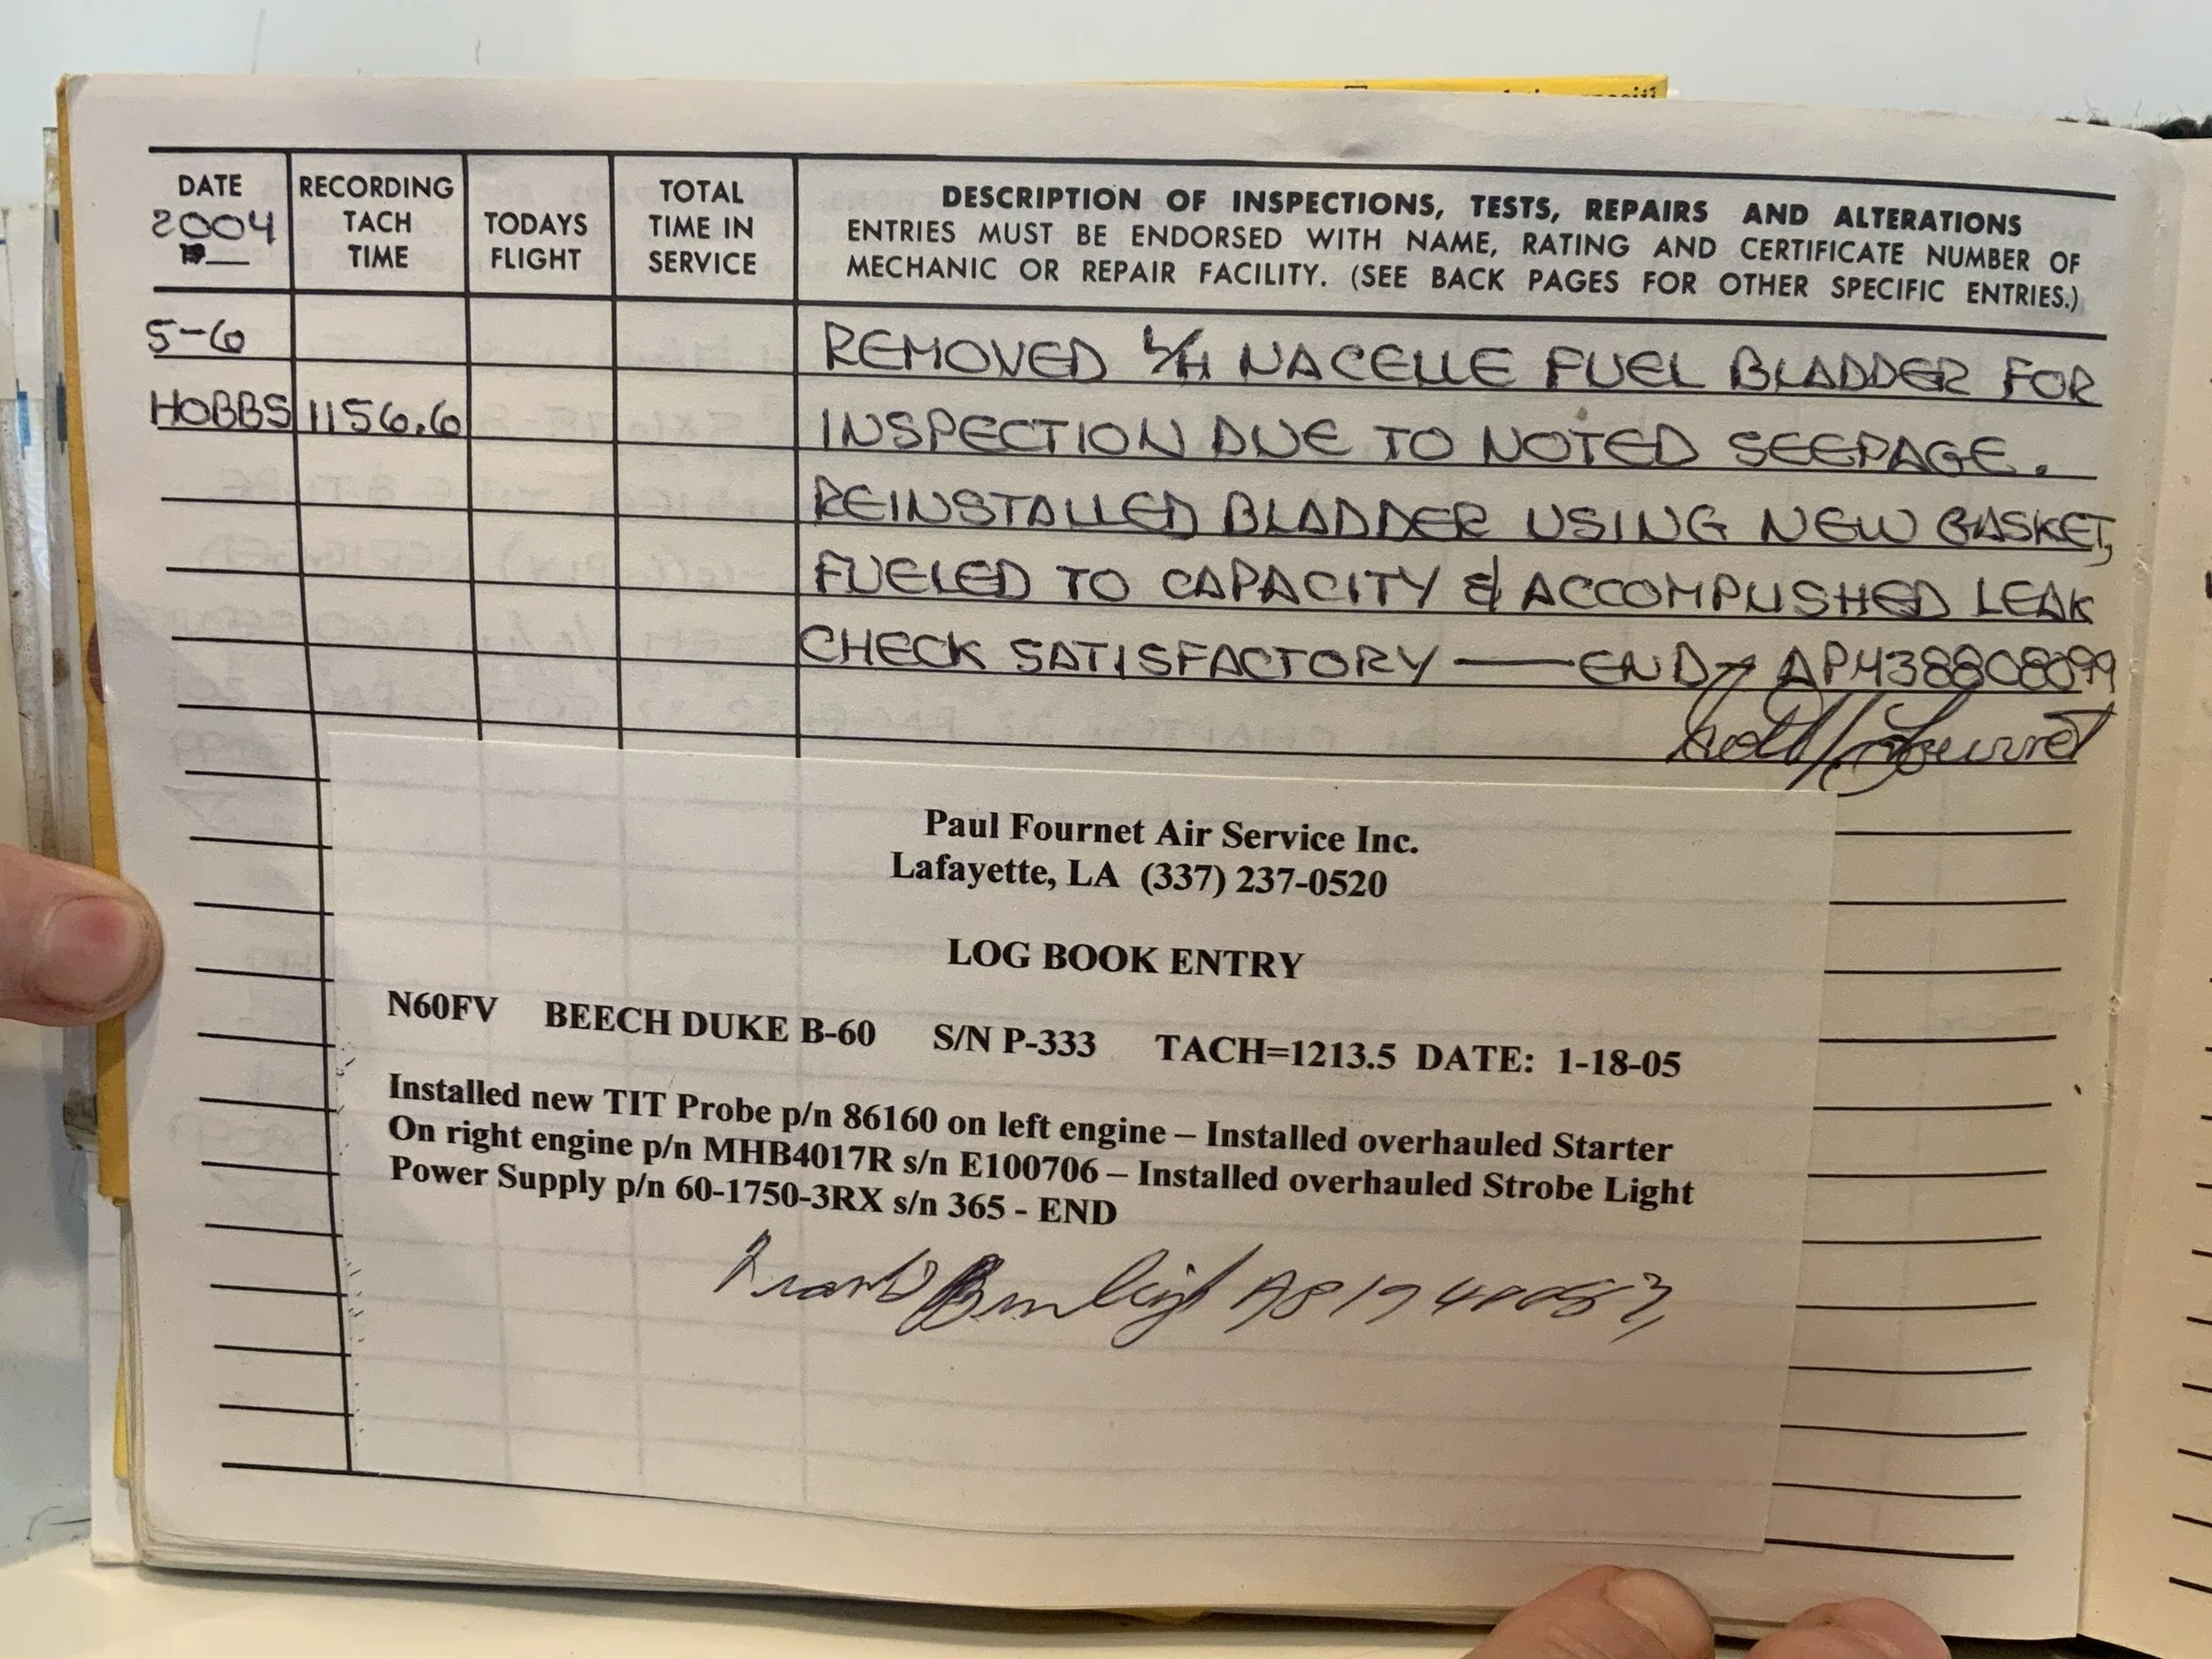 DATE
2004
19__
RECORDING
TACH
TIME
TODAYS
FLIGHT
TOTAL
TIME IN
SERVICE
DESCRIPTION OF INSPECTIONS, TESTS, REPAIRS AND ALTERATIONS
ENTRIES MUST BE ENDORSED WITH NAME, RATING AND CERTIFICATE NUMBER OF
MECHANIC OR REPAIR FACILITY. (SEE BACK PAGES FOR OTHER SPECIFIC ENTRIES.)
5-6 REMOVED L/H NACELLE FUEL BLADDER FOR
HOBBS 1156.6 INSPECTION DUE TO NOTED SEEPAGE.
REINSTALLED BLADDER USING NEW GASKET,
FUELED TO CAPACITY & ACCOMPLISHED LEAK
CHECK SATISFACTORY — END → AP438808099
Paul Fournet Air Service Inc.
Lafayette, LA (337) 237-0520
LOG BOOK ENTRY
N60FV BEECH DUKE B-60 S/N P-333 TACH=1213.5 DATE: 1-18-05
Installed new TIT Probe p/n 86160 on left engine – Installed overhauled Starter
On right engine p/n MHB4017R s/n E100706 – Installed overhauled Strobe Light
Power Supply p/n 60-1750-3RX s/n 365 - END